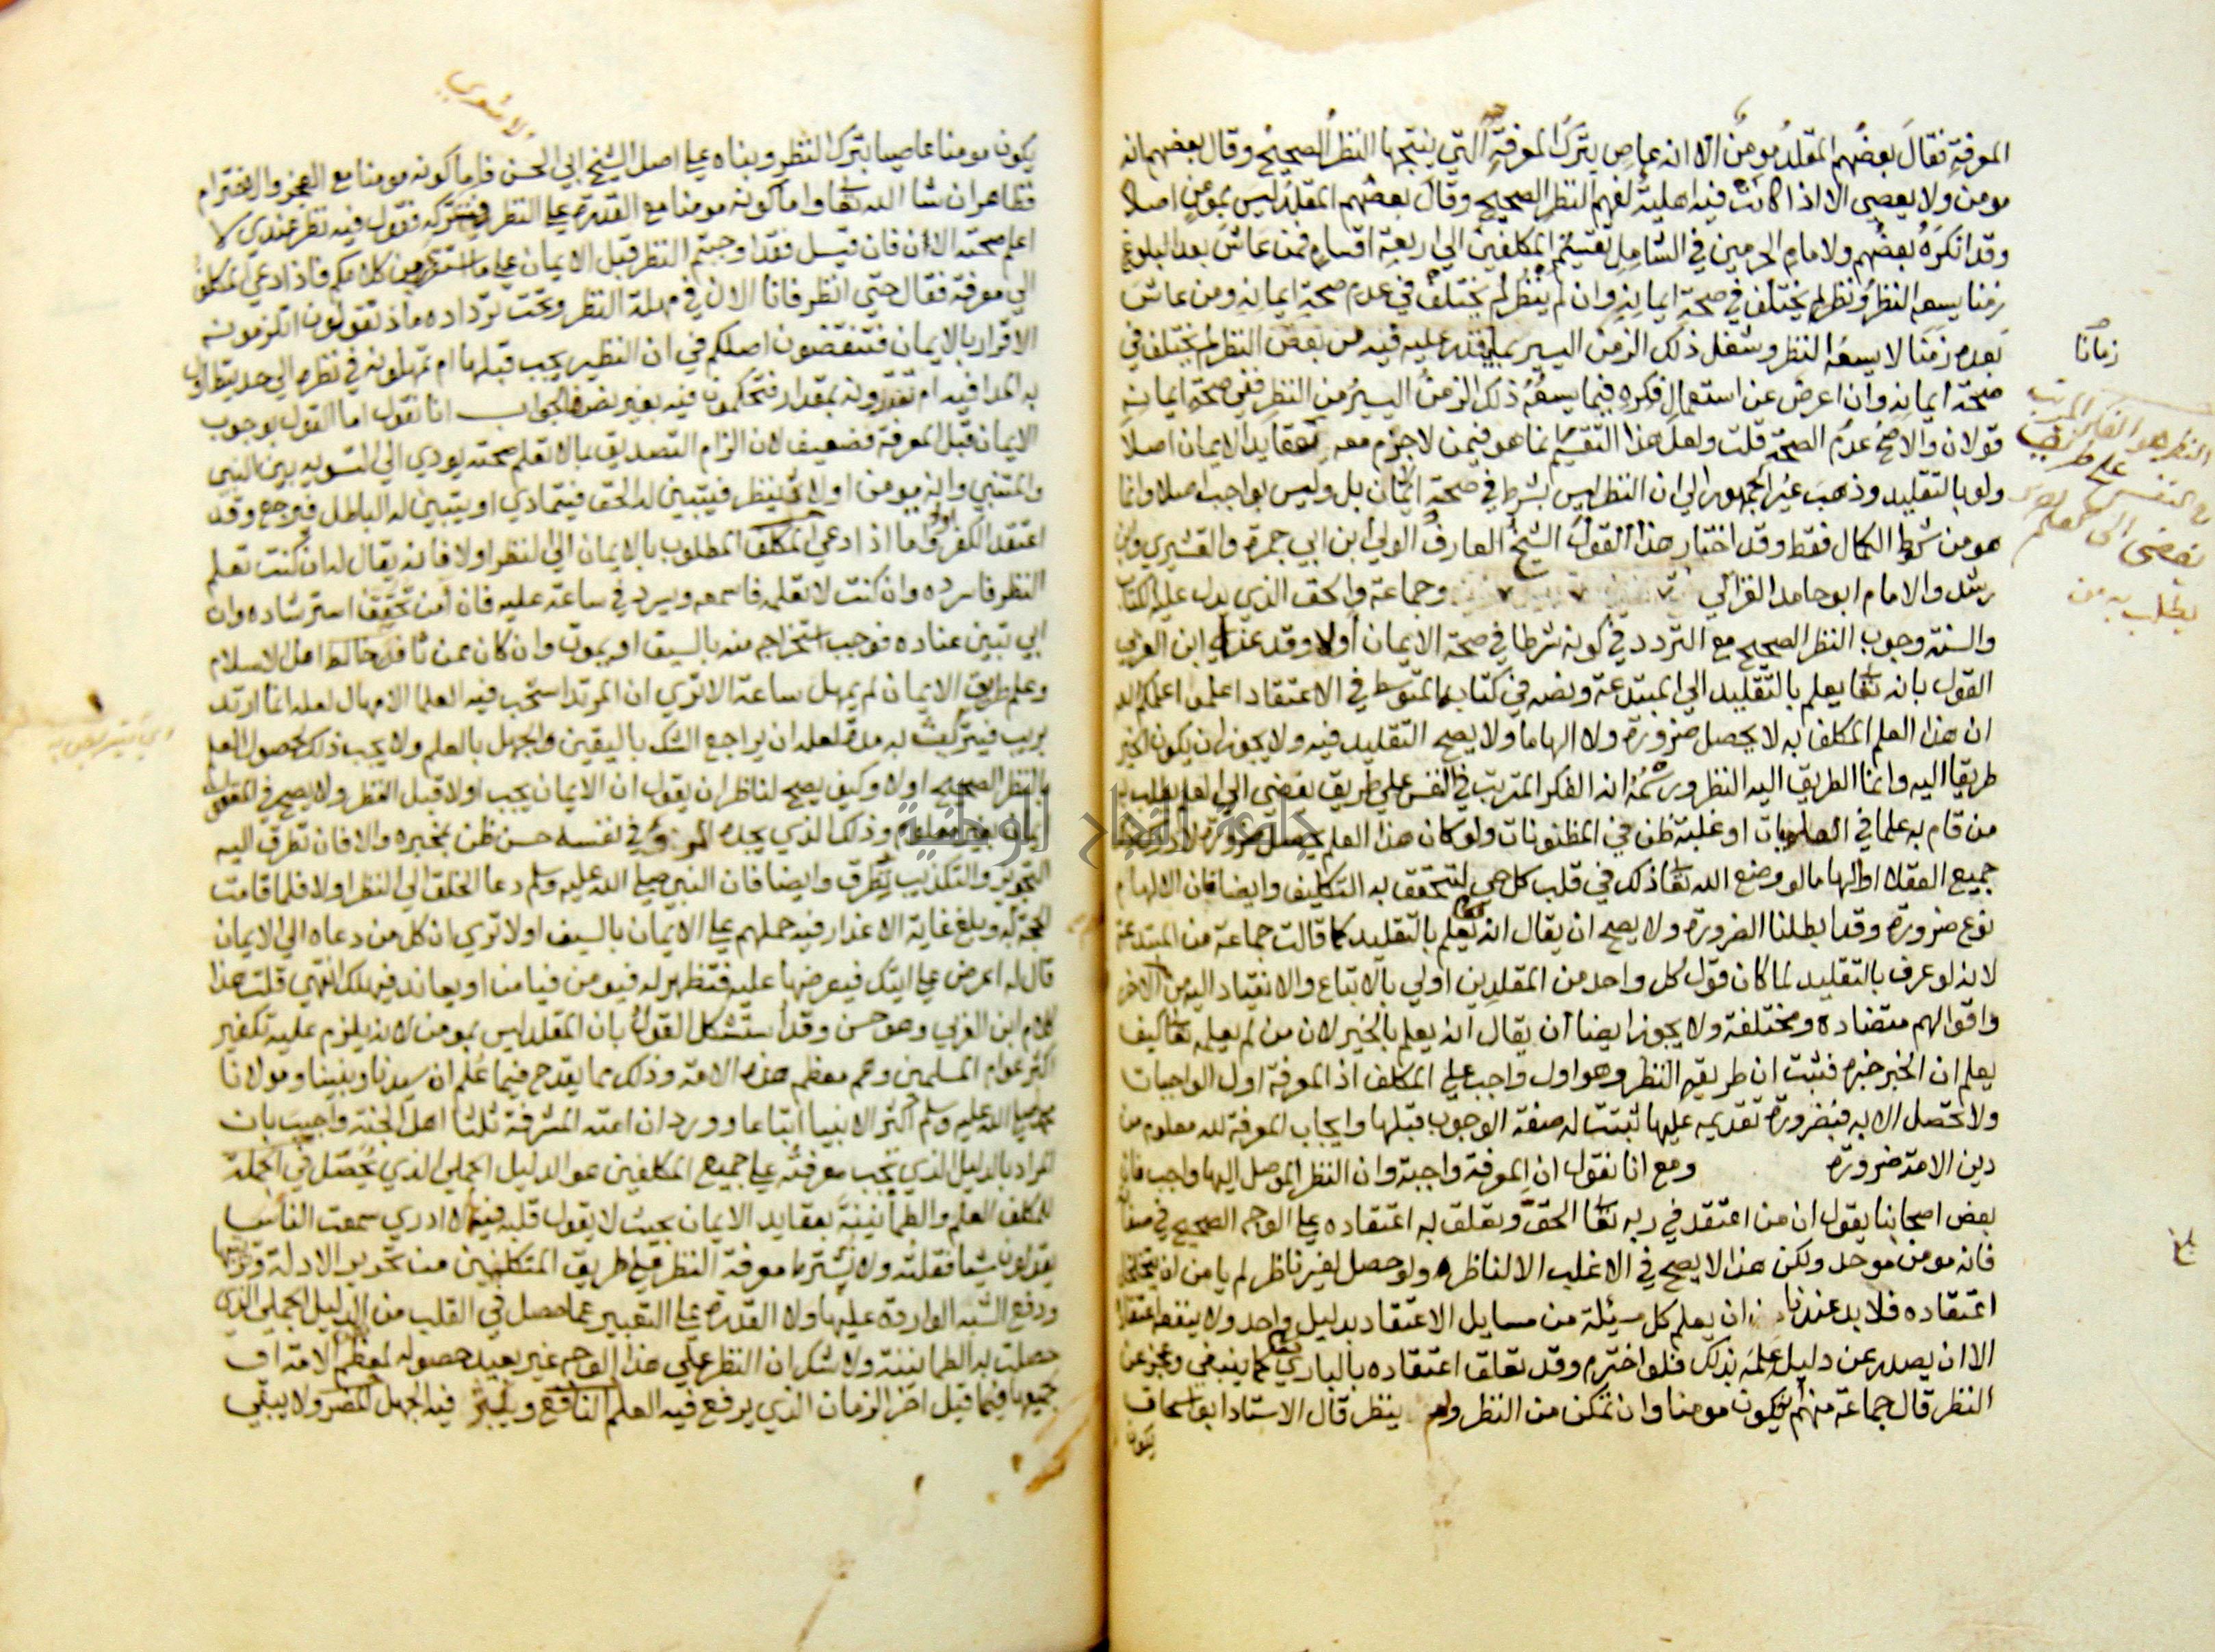 المعرفة فقال بعضهم المقلد مومن الا انه عاص بترك المعرفة التي ينتجها النظر الصحيح وقال بعضهم انه
مومن ولا يعصى الا اذا كانت فيه اهلية لفهم النظر الصحيح وقال بعضهم المقلد ليس بمومن اصلا
وقد انكره بعضهم ولامام الحرمين في الشامل تقسيم المكلفين الي اربعة اقسام فمن عاش بعد البلوغ
زمنا يسعه النظر ونظر لم يختلف في صحة ايمانه وان لم ينظر لم يختلف في عدم صحة ايمانه ومن عاش
بعده زمنا لا يسعه النظر وشغل ذلك الزمن اليسير بما يقدر عليه فيه من بعض النظر لم يختلف في
صحة ايمانه وان اعرض عن استعمال فكره فيما يسعه ذلك الزمن اليسير من النظر ففي صحة ايمانه
قولان والاصح عدم الصحة قلت ولعل هذا التقسيم انما هو فيمن لا جزم معه بعقايد الايمان اصلا
ولو بالتقليد وذهب غير الجمهور الي ان النظر ليس بشرط في صحة الايمان بل وليس بواجب اصلا وانما
هو من شروط الكمال فقط وقد اختار هذا القول الشيخ العارف الولي ابن ابي جمرة والقشيري وابن
رشد والامام ابو حامد الغزالي وجماعة والحق الذي يدل عليه الكتاب
والسنة وجوب النظر الصحيح مع التردد في كونه شرطا في صحة الايمان اولا وقد عزى ابن العربي
القول بانه تعا يعلم بالتقليد الي المبتدعة ونصه في كتابه المتوسط في الاعتقاد اعلموا علمكم الله
ان هذا العلم المكلف به لا يحصل ضرورة ولا الهاما ولا يصح التقليد فيه ولا يجوز ان يكون الخبر
طريقا اليه وانما الطريق اليه النظر ورسمه انه الفكر المترتب في النفس علي طريق يفضى الي العلم يطلب به
من قام به علما في العلميات او غلبة ظن في المظنونات ولو كان هذا العلم يحصل ضرورة لادرك
جميع العقلا او الهاما لو وضع الله تعا ذلك في قلب كل حي ليتحقق به التكليف وايضا فان الالهام
نوع ضرورة وقد ابطلنا الضرورة ولا يصح ان يقال انه يعلم بالتقليد كما قالت جماعة من المبتدعة
لانه لو عرف بالتقليد لما كان قول كل واحد من المقلدين اولي بالاتباع والانقياد اليه من الاخر
واقوالهم متضاده ومختلفة ولا يجوز ايضا ان يقال انه يعلم بالخبر لان من لم يعلمه تعا كيف
يعلم ان الخبر خبره فثبت ان طريقه النظر وهو اول واجب علي المكلف اذ المعرفة اول الواجبات
ولا تحصل الا به فبضرورة تقديمه عليها ثبتت له صفة الوجوب قبلها وايجاب المعرفة لله معلوم من
دين الامة ضرورة ومع انا نقول ان المعرفة واجبة وان النظر الموصل اليها واجب فان
بعض اصحابنا يقول ان من اعتقد في ربه تعا الحق وتعلق به اعتقاده علي الوجه الصحيح في صفاته
فانه مومن موحد ولكن هذا لا يصح في الاغلب الا لناظر ولو حصل لغير ناظر لم يامن ان يتخلخل
اعتقاده فلا بد عندنا ان يعلم كل مسئلة من مسايل الاعتقاد بدليل واحد ولا ينفعه اعتقاده
الا ان يصدر عن دليل علمه بذلك فلو اخترم وقد تعلق اعتقاده بالباري تعا كما ينبغي وعجز عن
النظر قال جماعة منهم يكون مومنا وان تمكن من النظر ولم ينظر قال الاستاد ابو اسحاق
يكون
زمانا
النظر هو الفكر المرتب
في النفس على طريق
يفضى الى العلم
يطلب به من
يكون مومنا عاصيا بترك النظر وبناه علي اصل الشيخ ابي الحسن فاما كونه مومنا مع العجز والاخترام
فظاهر ان شا الله تعا واما كونه مومنا مع القدرة علي النظر وتركه فقول فيه نظر عندي لا
اعلم صحته الان فان قيل فقد اوجبتم النظر قبل الايمان علي ما استقر من كلامكم فاذا دعي المكلف
الي معرفة فقال حتي انظر فانا الان في مهلة النظر وتحت ترداده ماذا تقولون اتلزمونه
الاقرار بالايمان فتنقضون اصلكم في ان النظر يجب قبله ام تمهلونه في نظره الي حد يتطاول
به المدا فيه ام تقدرونه بمقدار فتحكمون فيه بغير نص فالجواب انا نقول اما القول بوجوب
الايمان قبل المعرفة فضعيف لان الزام التصديق بما لا تعلم صحته يودي الي التسوية بين النبي
والمتنبي وانه يومن اولا ثم ينظر فيتبين له الحق فيتمادي او يتبين له الباطل فيرجع وقد
اعتقد الكفر واما اذا دعي المكلف المطلوب بالايمان الي النظر اولا فانه يقال له ان كنت تعلم
النظر فاسرده وان كنت لا تعلمه فاسمعه ويسرد في ساعة عليه فان امن تحقق استرشاده وان
ابي تبين عناده فوجب استخراجه منه بالسيف او يموت وان كان ممن ثافن خالط اهل الاسلام
وعلم طريق الايمان لم يمهل ساعة الا تري ان المرتد استحب فيه العلما الامهال لعله انما ارتد
بريب فيتربص به مدة لعله ان يراجع الشك باليقين والجهل بالعلم ولا يجب ذلك لحصول العلم
بالنظر الصحيح اولا وكيف يصح لناظر ان يقول ان الايمان يجب اولا قبل النظر ولا يصح في المعقول
ايمان بغير معلوم وذلك الذي يجده المرء في نفسه حسن ظن بمخبره والا فان تطرق اليه
التجويز والتكذيب تطرق وايضا فان النبي صلي الله عليه وسلم دعا الخلق الي النظر اولا فلما قامت
الحجة به وبلغ غاية الاعذار فيه حملهم علي الايمان بالسيف اولا تري ان كل من دعاه الي الايمان
قال له اعرض علي ايتك فيعرضها عليه فتظهر له فيومن فيامن او يعاند فيهلك انتهي قلت هذا
كلام ابن العربي وهو حسن وقد استشكل القول بان المقلد ليس بمومن لانه يلزم عليه تكفير
اكثر عوام المسلمين وهم معظم هذه الامة وذلك مما يقدح فيما علم ان سيدنا ونبينا ومولانا
محمد صلي الله عليه وسلم اكثر الانبيا اتباعا وورد ان امته المشرفة ثلثا اهل الجنة واجيب بان
المراد بالدليل الذي تجب معرفته علي جميع المكلفين هو الدليل الجملي الذي يحصل في الجملة
للمكلف العلم والطمأنينة بعقايد الايمان بحيث لا يقول قلبه فيها لا ادري سمعت الناس
يقولون شيا فقلته ولا يشترط معرفة النظر علي طريق المتكلمين من تحرير الادلة وترتيبها
ودفع الشبه الواردة عليها ولا القدرة علي التعبير عما حصل في القلب من الدليل الجملي الذي
حصلت به الطمانينة ولا شك ان النظر علي هذا الوجه غير بعيد حصوله لمعظم الامة او
جميعها فيما قبل اخر الزمان الذي يرفع فيه العلم النافع ويكثر فيه الجهل المضر ولا يبقي
الاشعري
جامعة النجاح الوطنية